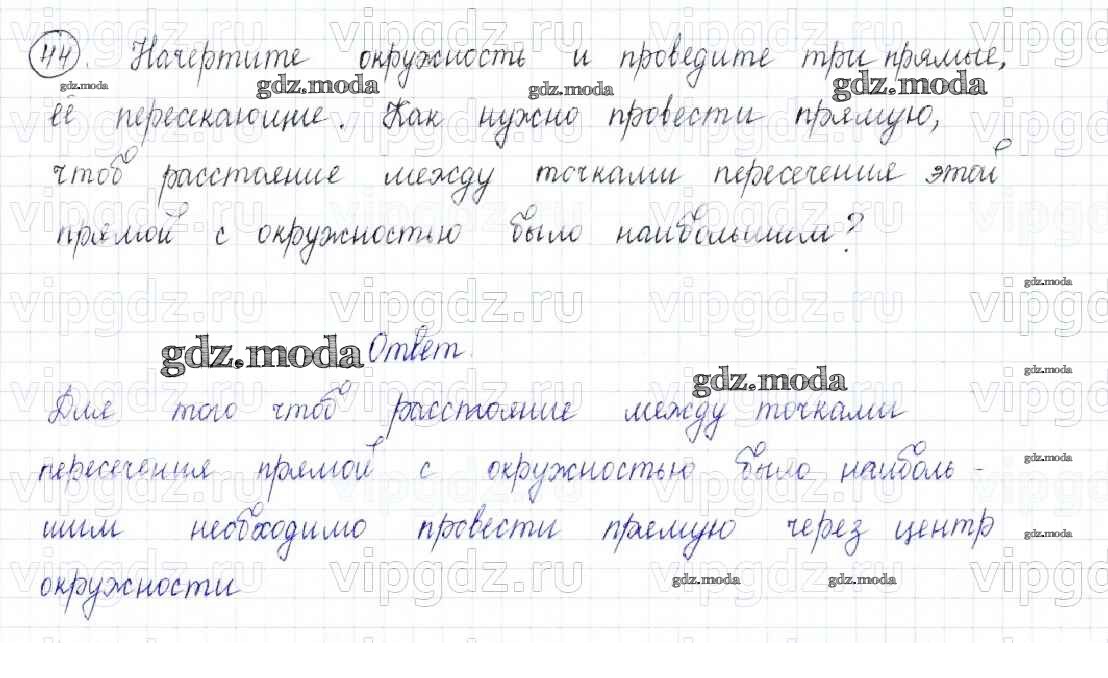 44. Начертите окружность и проведите три прямые,
её пересекающие. Как нужно провести прямую,
чтоб расстояние между точками пересечения этой
прямой с окружностью было наибольшим?
Ответ.
Для того чтоб расстояние между точками
пересечения прямой с окружностью было наиболь-
шим необходимо провести прямую через центр
окружности
gdz.moda
vipgdz.ru